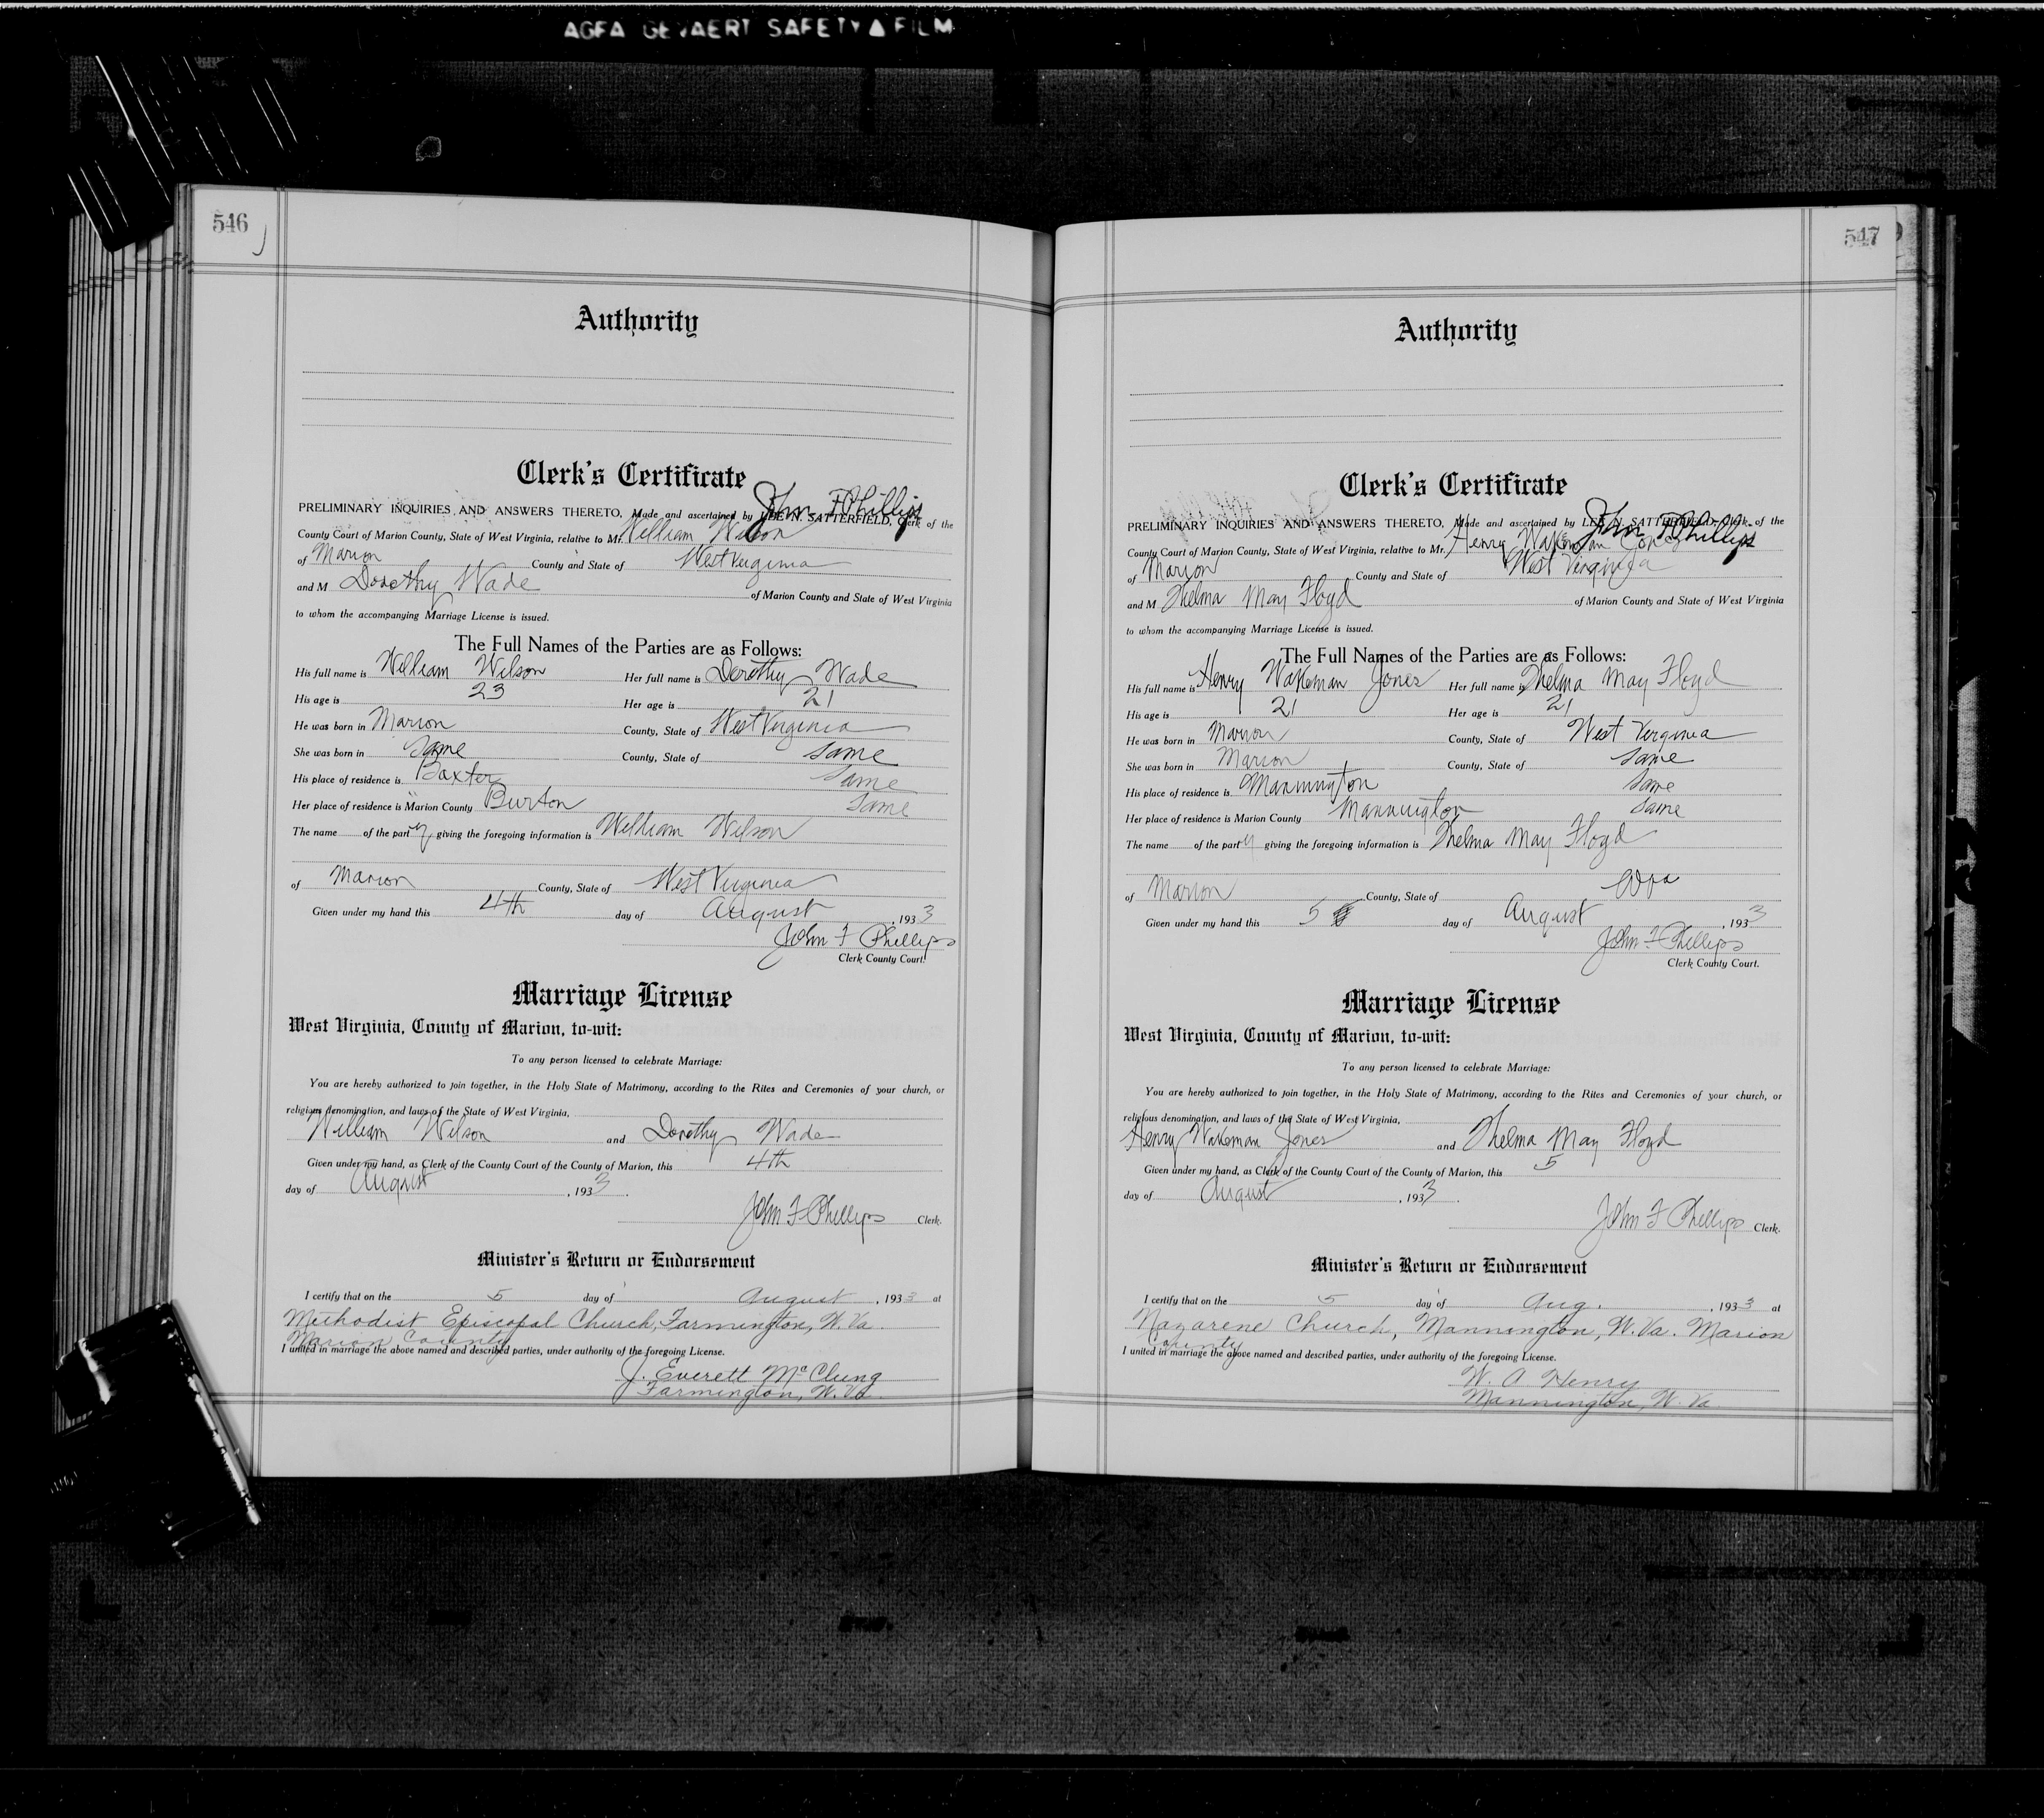 AGFA GEVAERT SAFETY ▲ FILM
546
Authority
Clerk's Certificate
PRELIMINARY INQUIRIES AND ANSWERS THERETO, Made and ascertained by LEE N. SATTERFIELD, Clerk of the
John F Phillips
County Court of Marion County, State of West Virginia, relative to Mr. William Wilson
of Marion County and State of West Virginia
and M Dorothy Wade of Marion County and State of West Virginia
to whom the accompanying Marriage License is issued.
The Full Names of the Parties are as Follows:
His full name is William Wilson Her full name is Dorothy Wade
His age is 23 Her age is 21
He was born in Marion County, State of West Virginia
She was born in Same County, State of Same
His place of residence is Baxter Same
Her place of residence is Marion County Burton Same
The name of the party giving the foregoing information is William Wilson
of Marion County, State of West Virginia
Given under my hand this 4th day of August, 1933
John F Phillips
Clerk County Court.
Marriage License
West Virginia, County of Marion, to-wit:
To any person licensed to celebrate Marriage:
You are hereby authorized to join together, in the Holy State of Matrimony, according to the Rites and Ceremonies of your church, or
religious denomination, and laws of the State of West Virginia,
William Wilson and Dorothy Wade
Given under my hand, as Clerk of the County Court of the County of Marion, this 4th
day of August, 1933.
John F Phillips Clerk.
Minister's Return or Endorsement
I certify that on the 5 day of August, 1933 at
Methodist Episcopal Church, Farmington, W. Va.
Marion County
I united in marriage the above named and described parties, under authority of the foregoing License.
J. Everett McClung
Farmington, W. Va.
547
Authority
Clerk's Certificate
PRELIMINARY INQUIRIES AND ANSWERS THERETO, Made and ascertained by LEE N. SATTERFIELD, Clerk of the
John F Phillips
County Court of Marion County, State of West Virginia, relative to Mr. Henry Wakeman Jones
of Marion County and State of West Virginia
and M Thelma May Floyd of Marion County and State of West Virginia
to whom the accompanying Marriage License is issued.
The Full Names of the Parties are as Follows:
His full name is Henry Wakeman Jones Her full name is Thelma May Floyd
His age is 21 Her age is 21
He was born in Marion County, State of West Virginia
She was born in Marion County, State of Same
His place of residence is Mannington Same
Her place of residence is Marion County Mannington Same
The name of the party giving the foregoing information is Thelma May Floyd
of Marion County, State of WVa
Given under my hand this 5 day of August, 1933
John F Phillips
Clerk County Court.
Marriage License
West Virginia, County of Marion, to-wit:
To any person licensed to celebrate Marriage:
You are hereby authorized to join together, in the Holy State of Matrimony, according to the Rites and Ceremonies of your church, or
religious denomination, and laws of the State of West Virginia,
Henry Wakeman Jones and Thelma May Floyd
Given under my hand, as Clerk of the County Court of the County of Marion, this 5
day of August, 1933.
John F Phillips Clerk.
Minister's Return or Endorsement
I certify that on the 5 day of Aug., 1933 at
Nazarene Church, Mannington, W. Va. Marion
County
I united in marriage the above named and described parties, under authority of the foregoing License.
W. A Henry
Mannington, W. Va